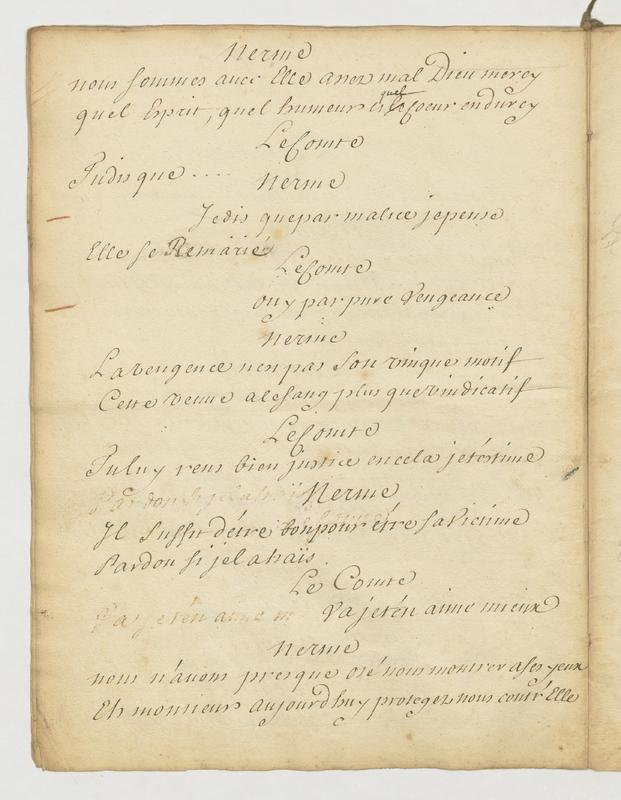 Nerine
nous sommes avec Elle assez mal Dieu mercy
quel Esprit, quel humeur et quel Coeur endurcy
Le Comte
Tu dis que ....
Nerine
Je dis que par malice je pense
Elle se Remarie
Le Comte
ouy par pure vengeance
Nerine
La vengence n'en pas son unique motif
Cette veuve a le sang plus que vindicatif
Le Comte
Tu luy rens bien justice en cela je t'estime
Pardon si je la haïs
Nerine
Il suffit d'être bon pour être sa victime
Pardon si je la haïs.
Le Comte
Va je t'en aime m
Va je t'en aime mieux
Nerine
nous n'avons presque osé nous montrer a ses yeux
Eh monsieur aujourd'huy protegez nous contr'Elle